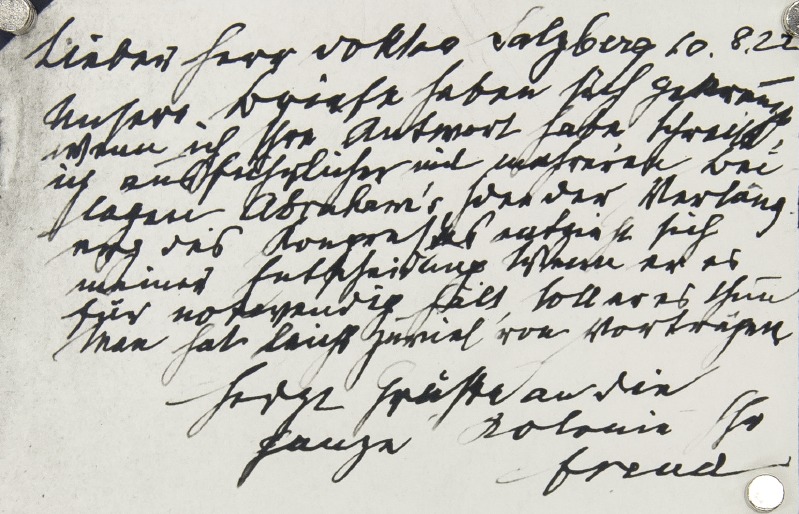 Lieber Herr Doktor Salzberg 10. 8. 22
Unsere Briefe haben sich gekreuzt
Wenn ich Ihre Antwort habe schreibe
ich ausführlicher mit mehreren Bei
lagen Abraham's Idee der Verläng
erg des Kongresses entzieht sich
meiner Entscheidung Wenn er es
für notwendig hält soll er es thun
Man hat leicht zuviel von Vorträgen
Herzl Grüße an die
ganze Kolonie Ihr
Freud